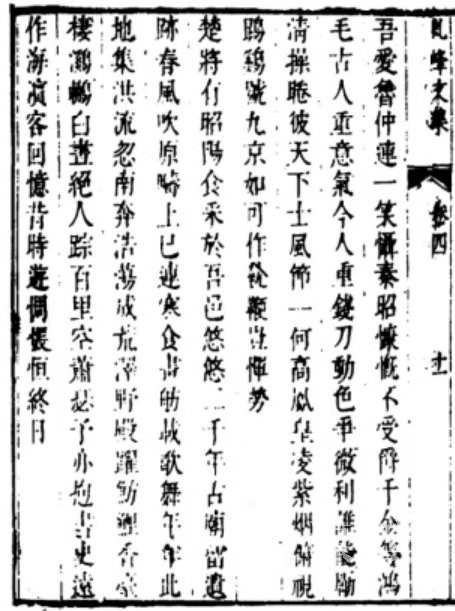 峰文集 卷四 十一
吾愛魯仲連一笑懾秦昭慷慨不受爵千金等鴻
毛古人重意氣今人重錢刀動色爭微利誰能勵
清操睠彼天下士風節一何高鳳皇凌紫烟俯視
鴟鴞號九京如可作執鞭豈憚勞
楚將有昭陽食采於吾邑悠悠二千年古廟留遺
跡春風吹原疇上巳連寒食畫舫載歌舞年年此
地集洪流忽南奔浩蕩成荒澤野殿躍魴鯉香臺
棲鸂鶒白晝絕人踪百里空蕭瑟予亦抱書史遠
作海濱客回憶昔時遊惆悵恒終日